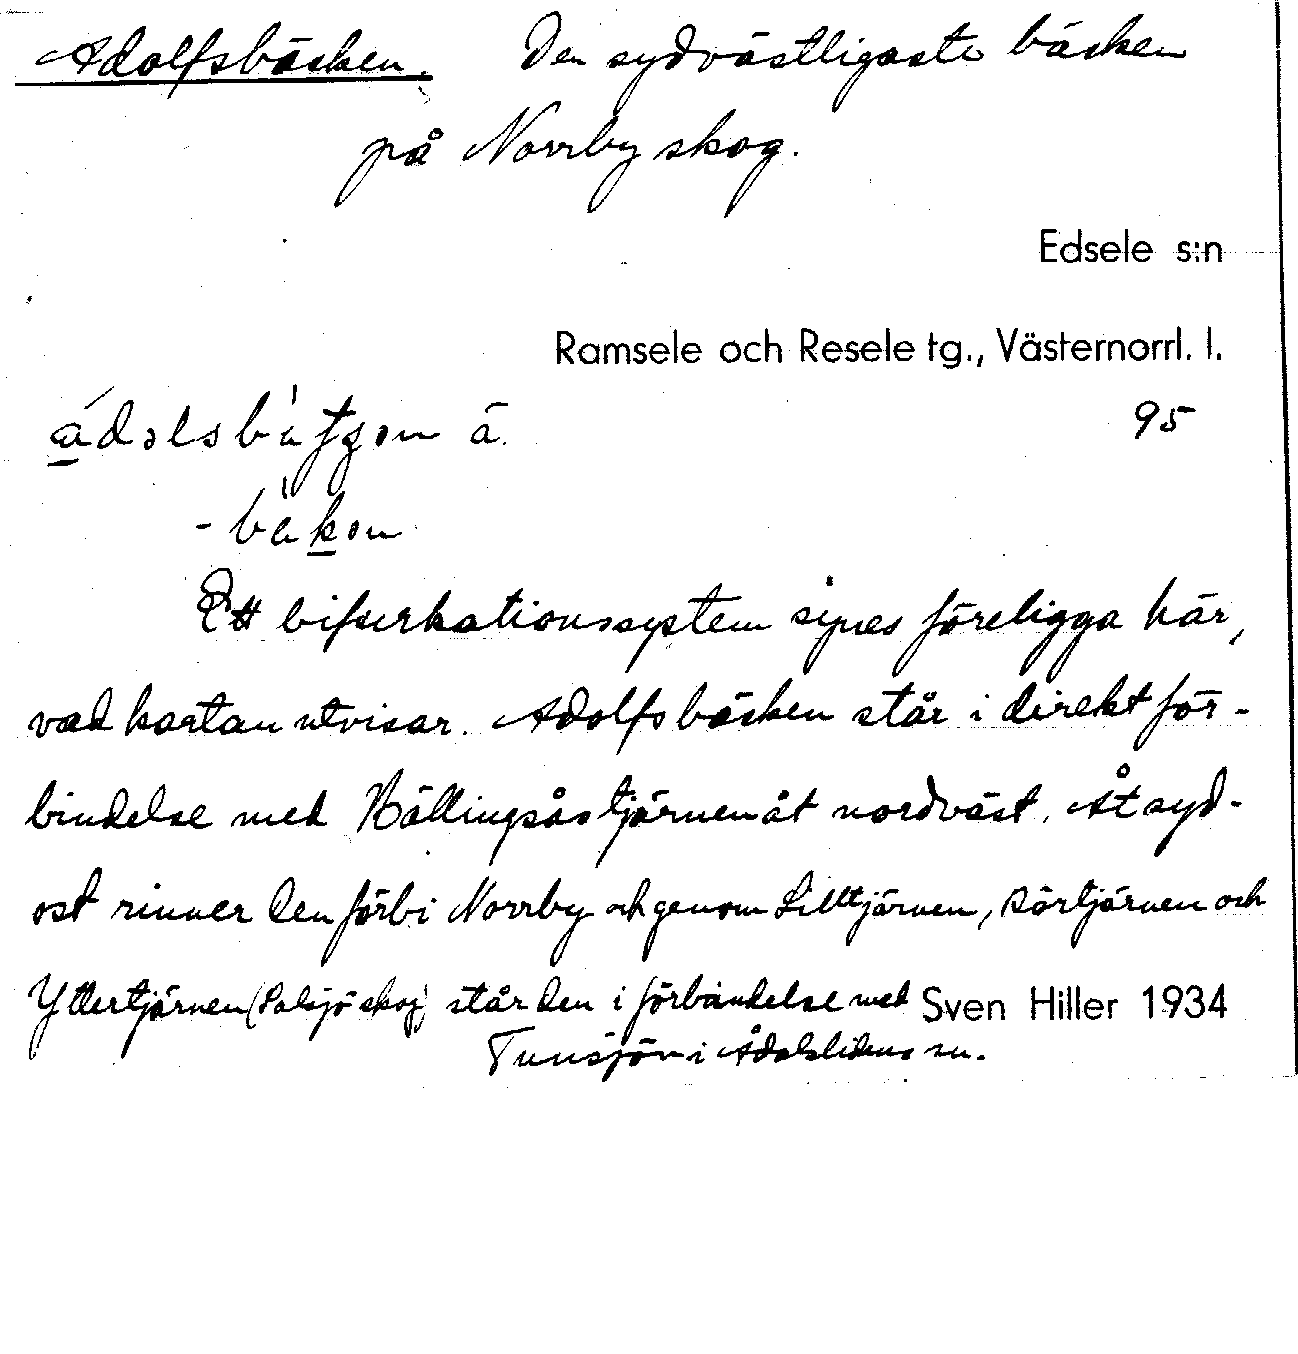 Adolfsbäcken. Den sydvästligaste bäcken
på Norrby skog.
Edsele s:n
Ramsele och Resele tg., Västernorrl. l.
95
Ett bifurkationssystem synes föreligga här,
vad kartan utvisar. Adolfsbäcken står i direkt för-
bindelse med Bällingsåstjärnen åt nordväst. Åt syd-
ost rinner den förbi Norrby och genom Lilltjärnen, Rörtjärnen och
Yttertjärnen (Salsjö skog) står den i förbindelse med Sven Hiller 1934
Tunsjön i Ådalslidens sn.